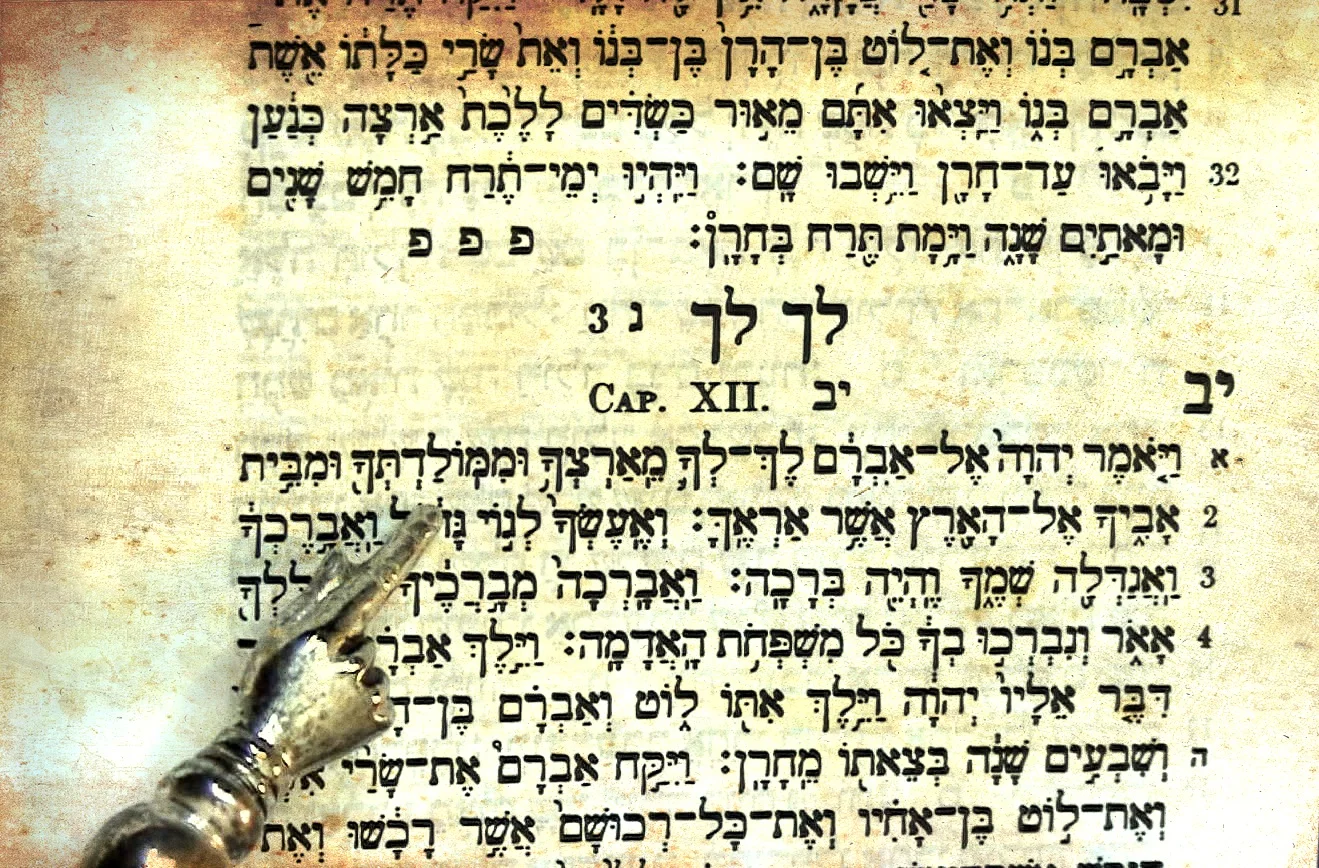 31
אַבְרָ֣ם בְּנ֗וֹ וְאֶת־ל֤וֹט בֶּן־הָרָן֙ בֶּן־בְּנ֔וֹ וְאֵת֙ שָׂרַ֣י כַּלָּת֔וֹ אֵ֖שֶׁת
אַבְרָ֣ם בְּנ֑וֹ וַיֵּצְא֨וּ אִתָּ֜ם מֵא֣וּר כַּשְׂדִּ֗ים לָלֶ֙כֶת֙ אַ֣רְצָה כְּנַ֔עַן
32 וַיָּבֹ֥אוּ עַד־חָרָ֖ן וַיֵּ֥שְׁבוּ שָֽׁם׃ וַיִּהְי֣וּ יְמֵי־תֶ֔רַח חָמֵ֥שׁ שָׁנִ֖ים
וּמָאתַ֣יִם שָׁנָ֑ה וַיָּ֥מָת תֶּ֖רַח בְּחָרָֽן׃ פ פ פ
לך לך ג 3
CAP. XII. יב
יב
א וַיֹּ֤אמֶר יְהוָה֙ אֶל־אַבְרָ֔ם לֶךְ־לְךָ֛ מֵאַרְצְךָ֥ וּמִמּֽוֹלַדְתְּךָ֖ וּמִבֵּ֣ית
2 אָבִ֑יךָ אֶל־הָאָ֖רֶץ אֲשֶׁ֥ר אַרְאֶֽךָּ׃ וְאֶֽעֶשְׂךָ֙ לְג֣וֹי וַאֲבָ֣רֶכְךָ֔
3 וַאֲגַדְּלָ֖ה שְׁמֶ֑ךָ וֶהְיֵ֖ה בְּרָכָֽה׃ וַאֲבָֽרְכָה֙ מְבָ֣רְכֶ֔יךָ
4 אָאֹ֑ר וְנִבְרְכ֣וּ בְךָ֔ כֹּ֖ל מִשְׁפְּחֹ֥ת הָאֲדָמָֽה׃ וַיֵּ֣לֶךְ
דִּבֶּ֤ר אֵלָיו֙ יְהוָ֔ה וַיֵּ֥לֶךְ אִתּ֖וֹ ל֑וֹט וְאַבְרָ֗ם בֶּן־
ה וְשִׁבְעִ֣ים שָׁנָ֔ה בְּצֵאת֖וֹ מֵחָרָֽן׃ וַיִּקַּ֣ח אַבְרָם֩ אֶת־שָׂרַ֨י
וְאֶת־ל֣וֹט בֶּן־אָחִ֗יו וְאֶת־כָּל־רְכוּשָׁם֙ אֲשֶׁ֣ר רָכָ֔שׁוּ וְאֶת